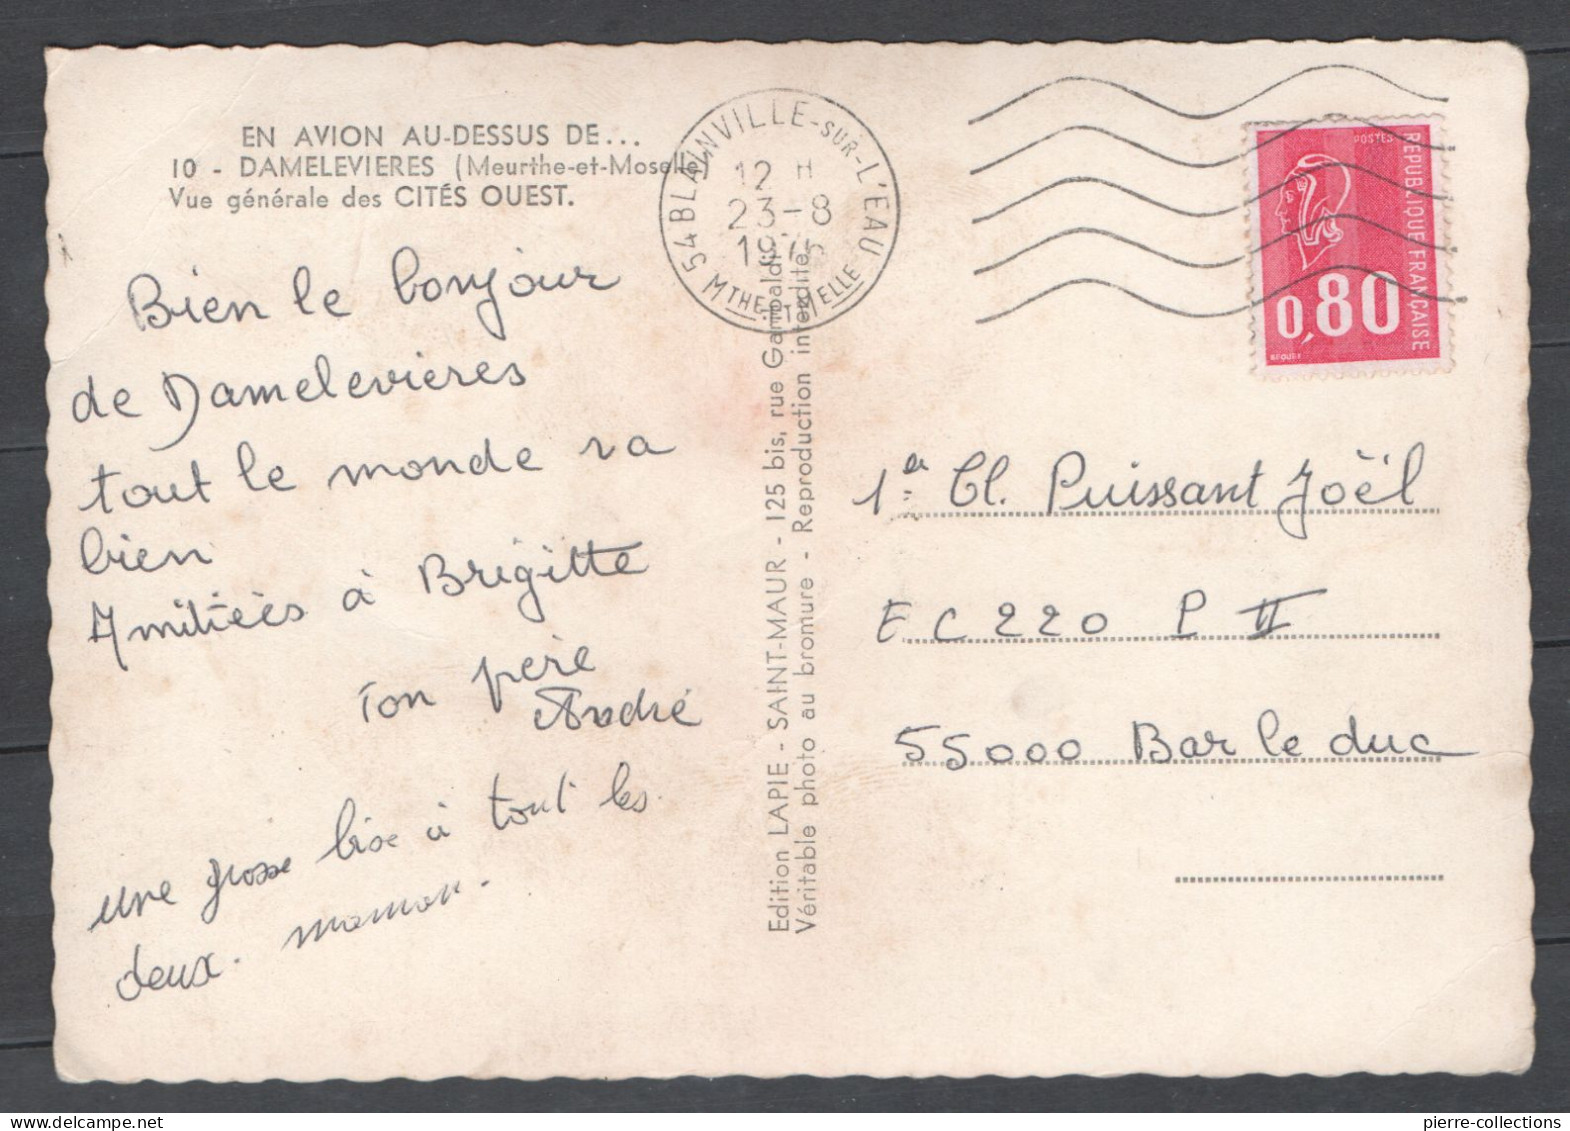 EN AVION AU-DESSUS DE...
10 - DAMELEVIERES (Meurthe-et-Moselle)
Vue générale des CITÉS OUEST.
Bien le bonjour
de Damelevieres
tout le monde va
bien
Amitiées à Brigitte
Ton père
André
une grosse bise à tout les
deux. maman.
Edition LAPIE - SAINT-MAUR - 125 bis, rue Garibaldi
Véritable photo au bromure - Reproduction interdite
54 BLAINVILLE-SUR-L'EAU
12 H
23-8
MTHE-ET-MELLE
POSTES
REPUBLIQUE FRANÇAISE
0,80
1er Cl. Puissant Joël
EC 220 P II
55000 Bar le duc
pierre-collections